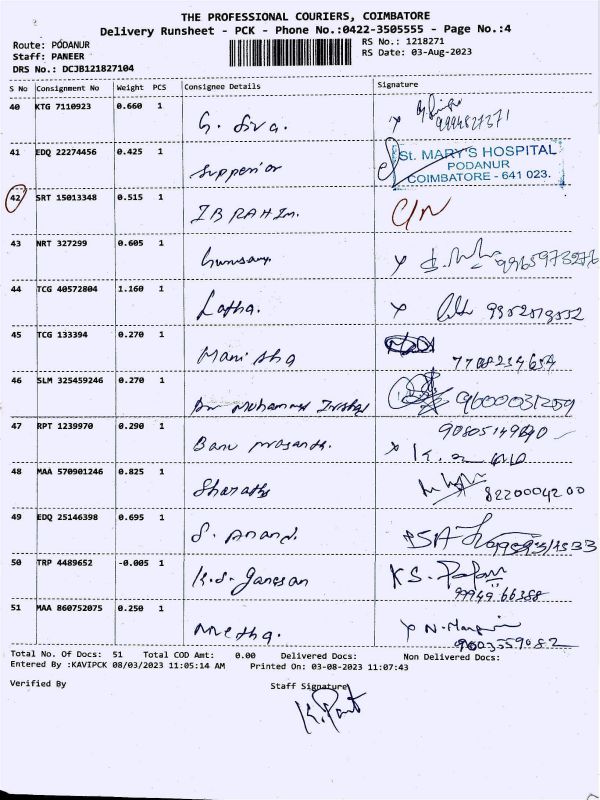 THE PROFESSIONAL COURIERS, COIMBATORE
Delivery Runsheet - PCK - Phone No.:0422-3505555 - Page No.:4
Route: PODANUR
RS No.: 1218271
Staff: PANEER
RS Date: 03-Aug-2023
DRS No.: DCJB121827104
S No Consignment No Weight PCS Consignee Details Signature
40 KTG 7110923 0.660 1 G. Siva.
41 EDQ 22274456 0.425 1 Supperior St. MARY'S HOSPITAL
PODANUR
COIMBATORE - 641 023.
42 SRT 15013348 0.515 1 IBRAHIM. C/N
43 NRT 327299 0.605 1
44 TCG 40572804 1.160 1 Latha.
45 TCG 133394 0.270 1 Manisha 7708234654
46 SLM 325459246 0.270 1
47 RPT 1239970 0.290 1 Banu
48 MAA 570901246 0.825 1 Sharath 8220004200
49 EDQ 25146398 0.695 1 S. Anand.
50 TRP 4489652 -0.005 1 K.S. Ganesan K S.
51 MAA 860752075 0.250 1 Metha. 9003559082
Total No. Of Docs: 51 Total COD Amt: 0.00 Delivered Docs: Non Delivered Docs:
Entered By :KAVIPCK 08/03/2023 11:05:14 AM Printed On: 03-08-2023 11:07:43
Verified By Staff Signature